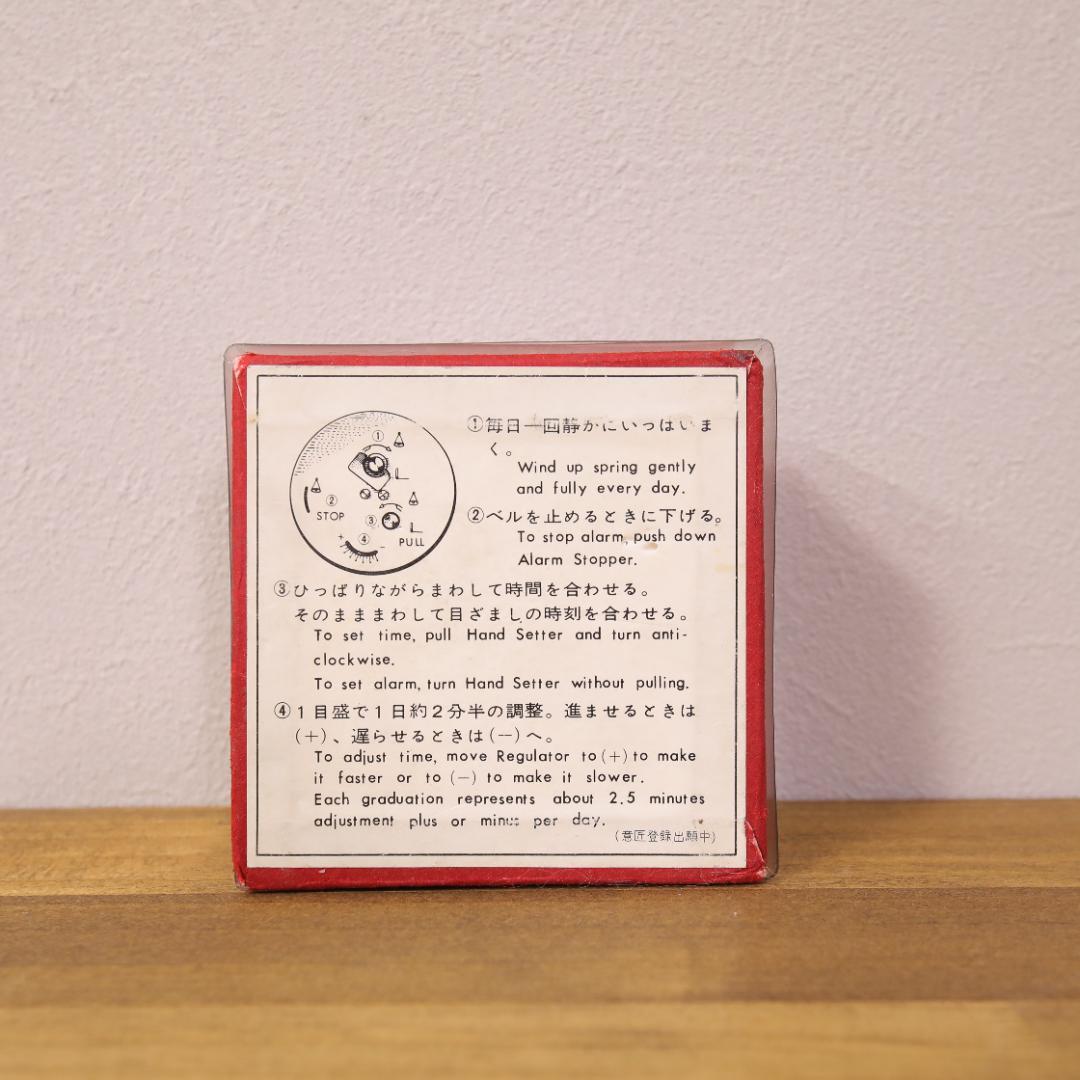 ①
②
STOP
③
④
+
−
PULL
①毎日一回静かにいっぱいま
く。
Wind up spring gently
and fully every day.
②ベルを止めるときに下げる。
To stop alarm, push down
Alarm Stopper.
③ひっぱりながらまわして時間を合わせる。
そのまままわして目ざましの時刻を合わせる。
To set time, pull Hand Setter and turn anti-
clockwise.
To set alarm, turn Hand Setter without pulling.
④1目盛で1日約2分半の調整。進ませるときは
(+)、遅らせるときは(−)へ。
To adjust time, move Regulator to (+) to make
it faster or to (−) to make it slower.
Each graduation represents about 2.5 minutes
adjustment plus or minus per day.
(意匠登録出願中)